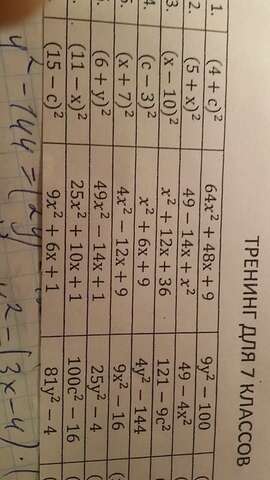 ТРЕНИНГ ДЛЯ 7 КЛАССОВ
1. (4 + c)² 64x² + 48x + 9 9y² − 100 (
2. (5 + x)² 49 − 14x + x² 49 − 4x²
3. (x − 10)² x² + 12x + 36 121 − 9c²
4. (c − 3)² x² + 6x + 9 4y² − 144
(x + 7)² 4x² − 12x + 9 9x² − 16
(6 + y)² 49x² − 14x + 1 25y² − 4
(11 − x)² 25x² + 10x + 1 100c² − 16
(15 − c)² 9x² + 6x + 1 81y² − 4
y² − 144 = (2y
² = (3x − 4) · (